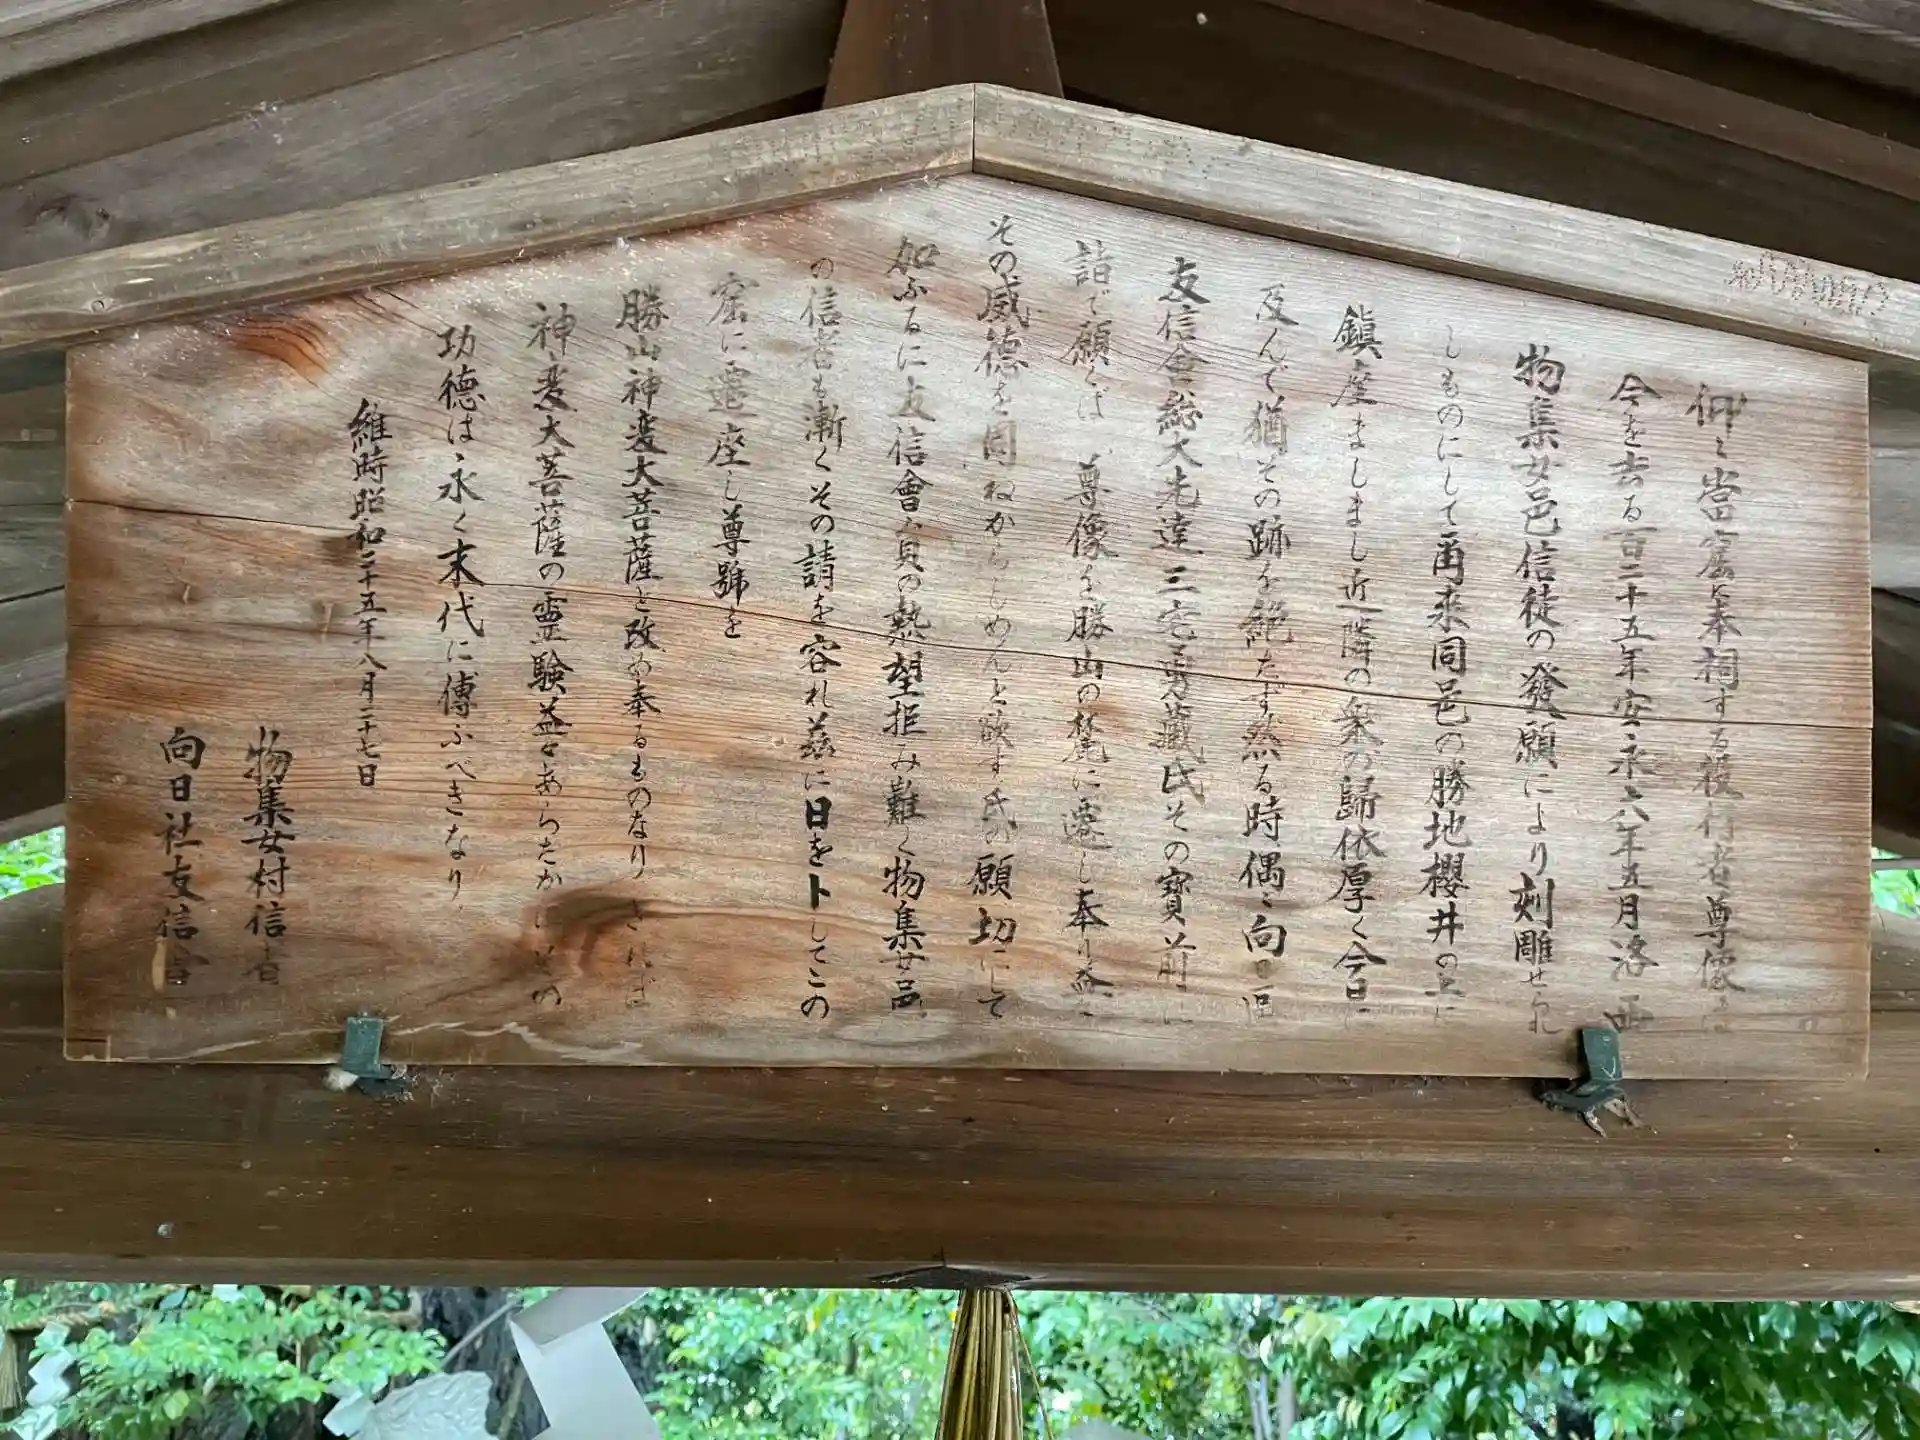 仰々當窟に奉祠する役行者尊像は
今を去る百二十五年安永六年五月洛西
物集女邑信徒の發願により刻雕せられ
しものにして爾来同邑の勝地櫻井の上に
鎮座ましまし近隣の衆の歸依厚く今日に
及んで猶その跡を絶たず然る時偶々向日町
友信會総大先達三宅勇藏氏その寶前に
詣で願くば尊像を勝山の麓に遷し奉り益々
その威徳を周ねからしめんと欲す氏の願切にして
加ふるに友信會員の熱望拒み難く物集女邑
の信者も漸くその請を容れ茲に日を卜してこの
窟に遷座し尊號を
勝山神変大菩薩と改め奉るものなりされば
神変大菩薩の霊験益々あらたかにその
功徳は永く末代に傳ふべきなり
維時昭和二十五年八月二十七日
物集女村信者
向日社友信会